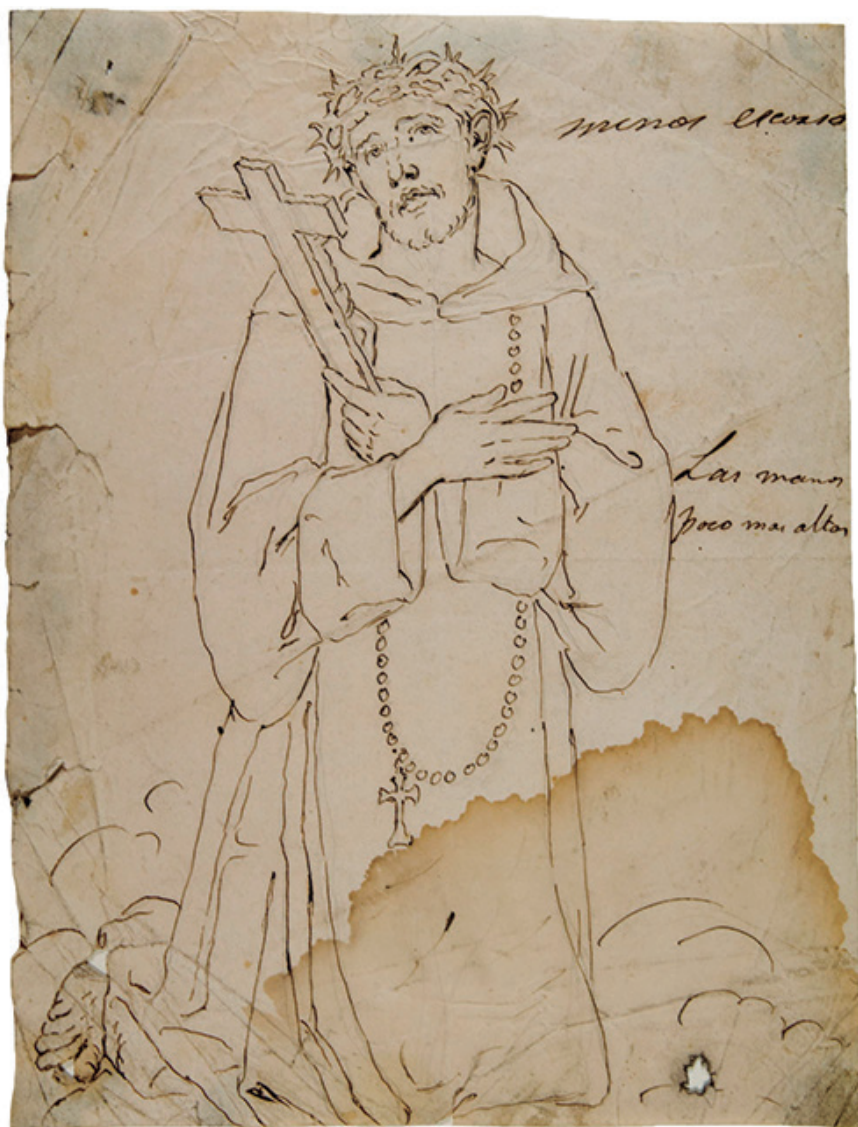 menos escorso
Las manos
poco mas altas